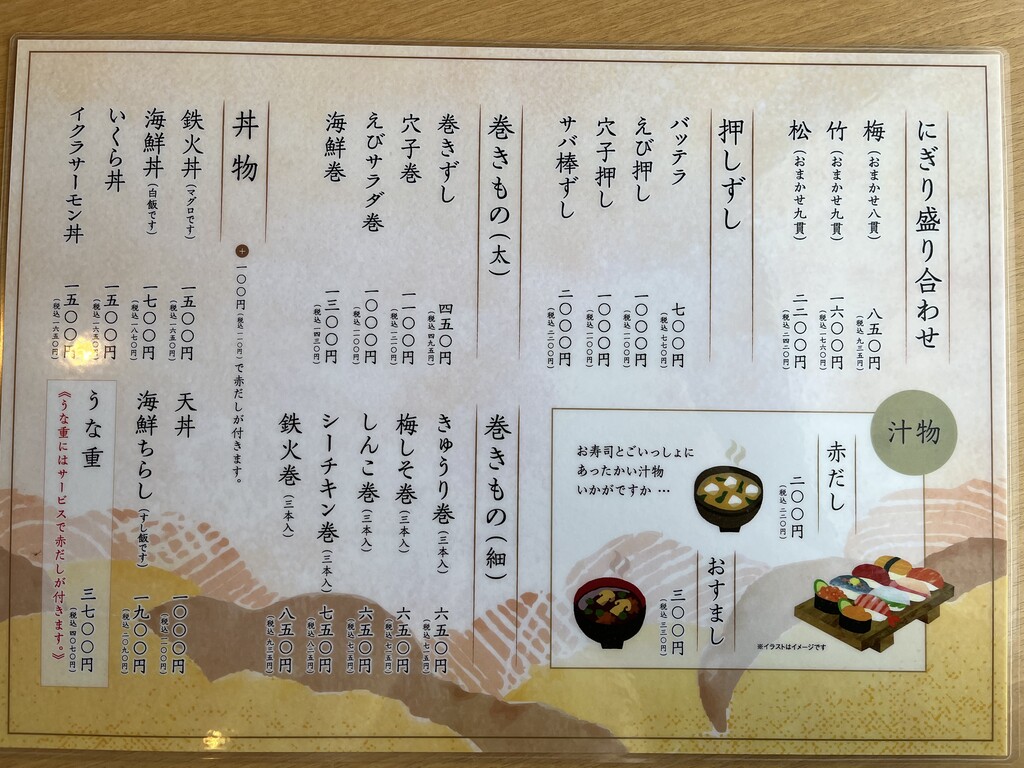 にぎり盛り合わせ
梅（おまかせ八貫） 八五〇円（税込 九三五円）
竹（おまかせ九貫） 一六〇〇円（税込 一七六〇円）
松（おまかせ九貫） 二二〇〇円（税込 二四二〇円）
押しずし
バッテラ 七〇〇円（税込 七七〇円）
えび押し 一〇〇〇円（税込 一一〇〇円）
穴子押し 一〇〇〇円（税込 一一〇〇円）
サバ棒ずし 二〇〇〇円（税込 二二〇〇円）
巻きもの（太）
巻きずし 四五〇円（税込 四九五円）
穴子巻 一一〇〇円（税込 一二一〇円）
えびサラダ巻 一〇〇〇円（税込 一一〇〇円）
海鮮巻 一三〇〇円（税込 一四三〇円）
丼物
＋一〇〇円（税込 一一〇円）で赤だしが付きます。
鉄火丼（マグロです） 一五〇〇円（税込 一六五〇円）
海鮮丼（白飯です） 一七〇〇円（税込 一八七〇円）
いくら丼 一五〇〇円（税込 一六五〇円）
イクラサーモン丼 一五〇〇円（税込 一六五〇円）
汁物
赤だし
二〇〇円（税込 二二〇円）
お寿司とごいっしょに
あったかい汁物
いかがですか …
おすまし
三〇〇円（税込 三三〇円）
※イラストはイメージです
巻きもの（細）
きゅうり巻（三本入） 六五〇円（税込 七一五円）
梅しそ巻（三本入） 六五〇円（税込 七一五円）
しんこ巻（三本入） 六五〇円（税込 七一五円）
シーチキン巻（三本入） 七五〇円（税込 八二五円）
鉄火巻（三本入） 八五〇円（税込 九三五円）
天丼 一〇〇〇円（税込 一一〇〇円）
海鮮ちらし（すし飯です） 一九〇〇円（税込 二〇九〇円）
うな重 三七〇〇円（税込 四〇七〇円）
《うな重にはサービスで赤だしが付きます。》